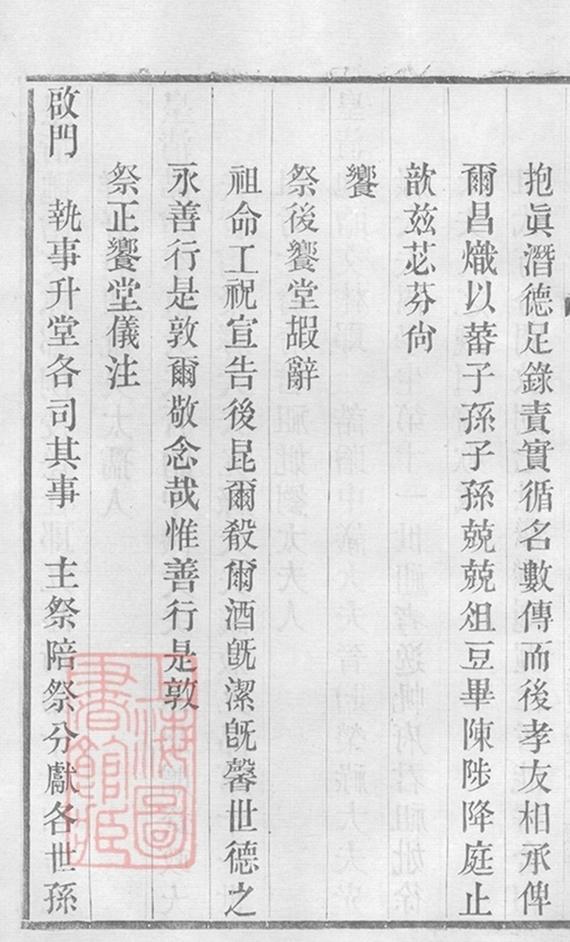 抱眞潛德足錄責實循名數傳而後孝友相承俾
爾昌熾以蕃子孫子孫兢兢俎豆畢陳陟降庭止
歆玆苾芬尙
饗
祭後饗堂嘏辭
祖命工祝宣告後昆爾殽爾酒旣潔旣馨世德之
永善行是敦爾敬念哉惟善行是敦
祭正饗堂儀注
啟門　執事升堂各司其事　主祭陪祭分獻各世孫
上海圖
書館藏